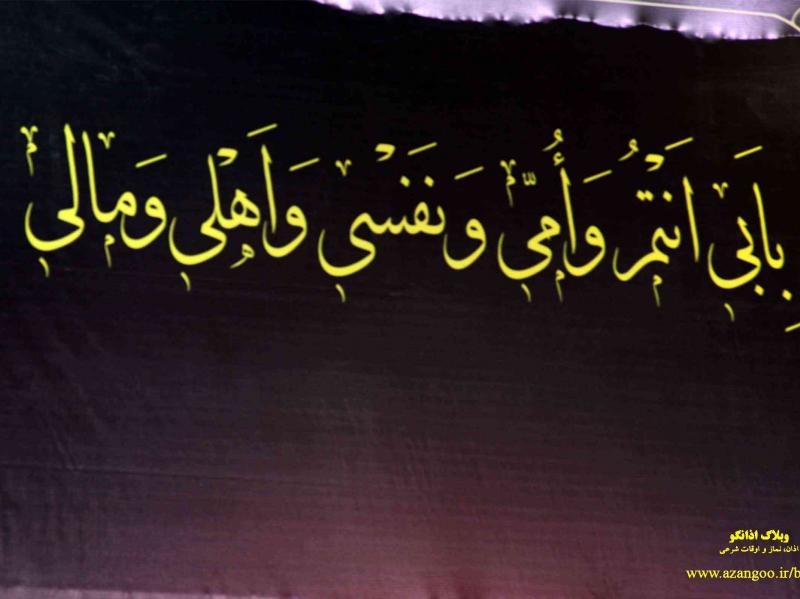 بِاَبي اَنْتُمْ وَأُمّي وَنَفَسْي وَاَهْلي وَمالي
وبلاگ اذانگو
اذان، نماز و اوقات شرعی
www.azangoo.ir/b